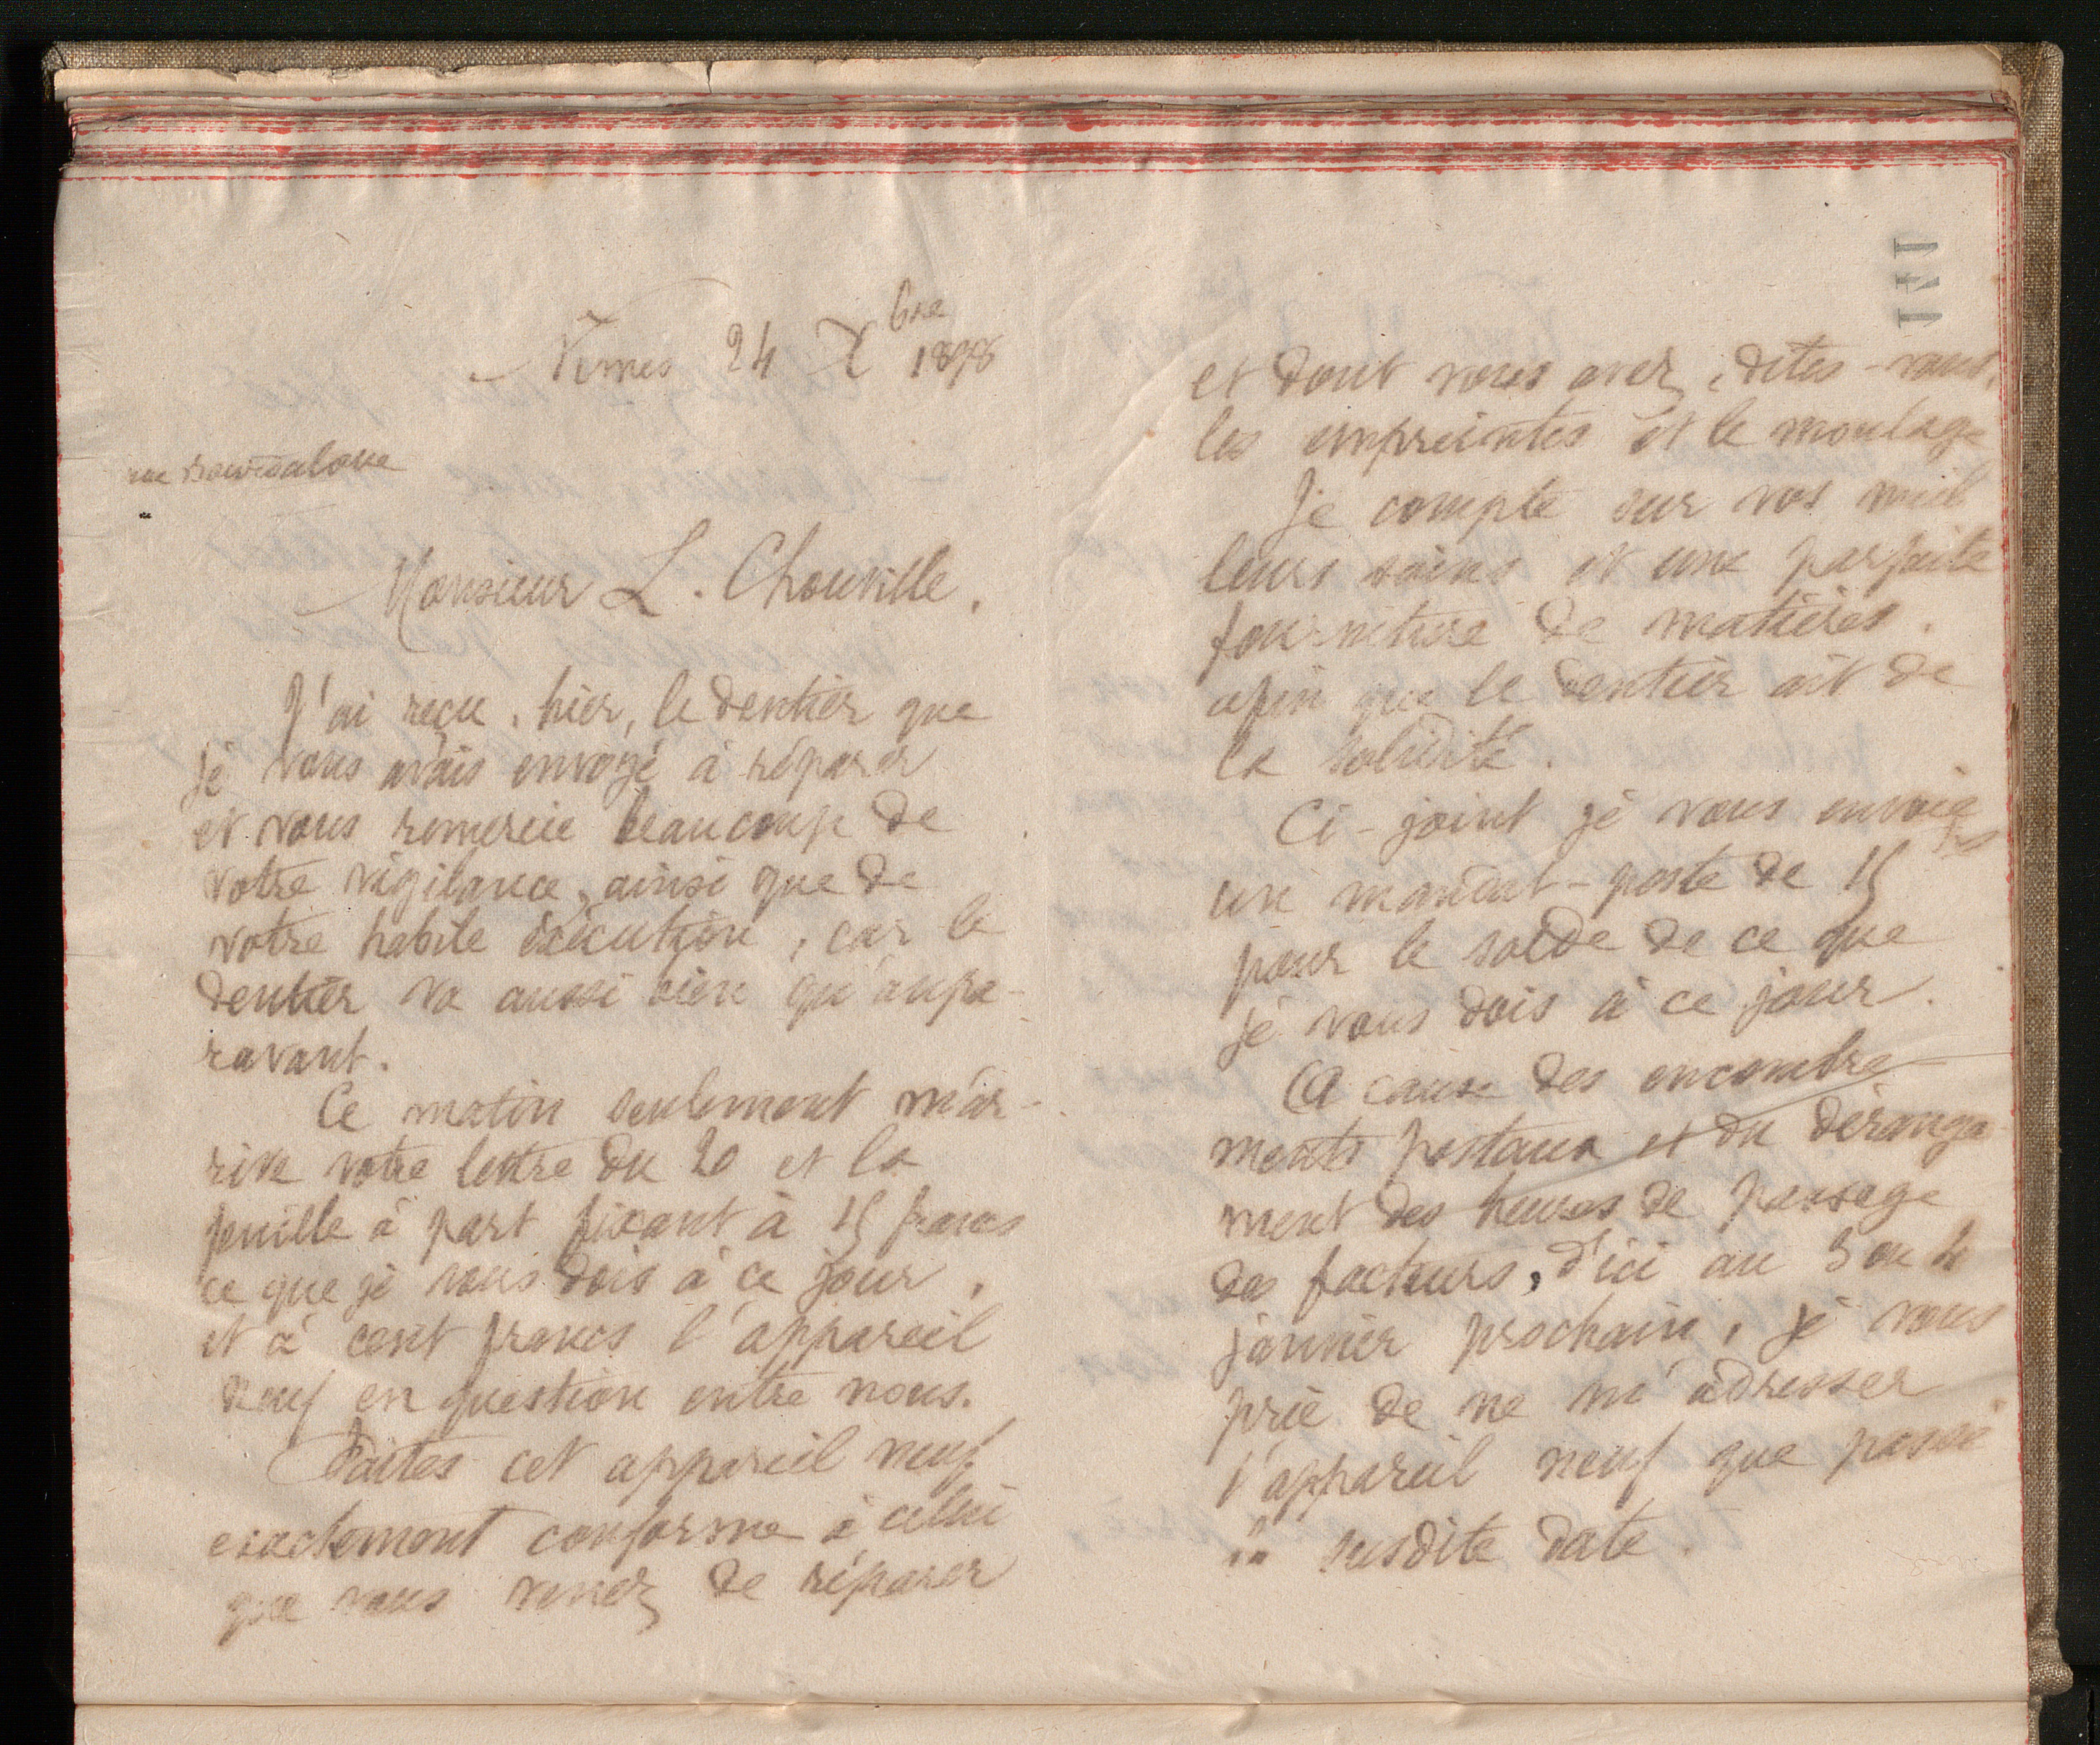 Nimes 24 Xbre 1898
rue Bourdaloue
Monsieur L. Chouville.
J'ai reçu, hier, le dentier que
je vous avais envoyé à réparer
et vous remercie beaucoup de
votre vigilance, ainsi que de
votre habile éxécution, car le
dentier va aussi bien qu'aupa-
ravant.
Ce matin seulement m'ar-
rive votre lettre du 20 et la
feuille à part fixant à 15 francs
ce que je vous dois à ce jour,
et à cent francs l'appareil
neuf en question entre nous.
Faites cet appareil neuf
exactement conforme à celui
que vous venez de réparer
et dont vous avez, dites-vous,
les empreintes et le moulage
Je compte sur vos meil
leurs soins et une parfaite
fourniture de matières.
afin que le dentier ait de
la solidité.
Ci-joint je vous envoie
un mandat-poste de 15 frs
pour le solde de ce que
je vous dois à ce jour.
A cause des encombre-
ments postaux et du dérange-
ment des heures de passage
des facteurs, d'ici au 3 ou 4
janvier prochain, je vous
prie de ne m'adresser
l'appareil neuf que passé
la susdite date.